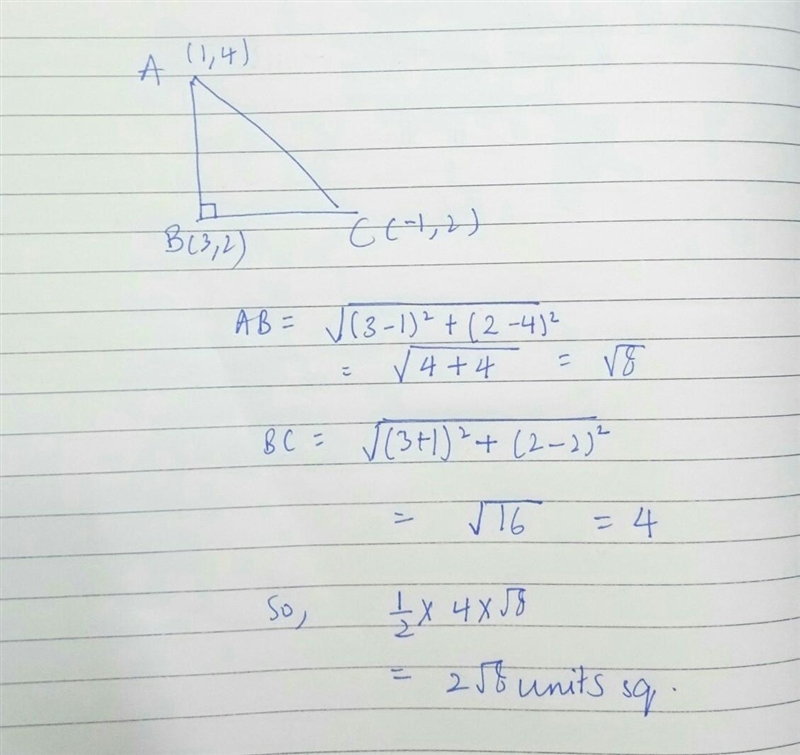 A (1,4)
B(3,2) C(-1,2)
AB = √(3-1)² + (2-4)²
= √4+4 = √8
BC = √(3+1)² + (2-2)²
= √16 = 4
So, 1/2 × 4 × √8
= 2√8 units sq.